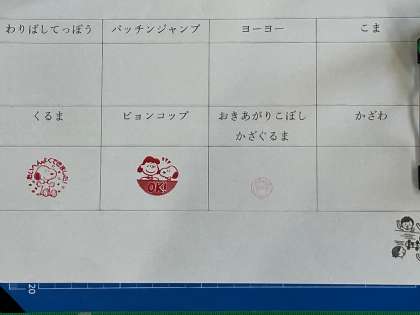 わりばしてっぽう
パッチンジャンプ
ヨーヨー
こま
くるま
ピョンコップ
おきあがりこぼし
かざぐるま
かざわ
たいへんよくできました
OK!
20